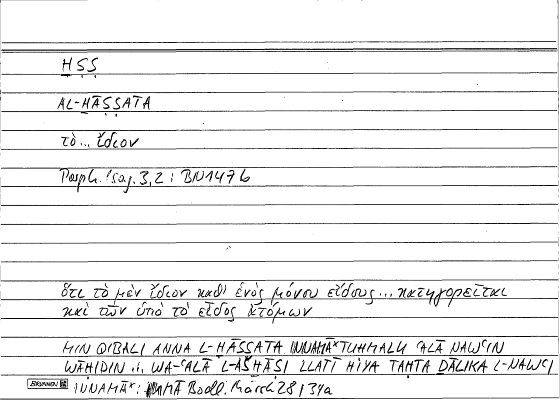 ḪṢṢ
AL-ḪĀṢṢATA
τὸ... ἴδιον
Porph. Isag. 3,2 : BN 147b
ὅτι τὸ μὲν ἴδιον καθ' ἑνὸς μόνου εἴδους... κατηγορεῖται
καὶ τῶν ὑπὸ τὸ εἶδος ἀτόμων
MIN QIBALI ANNA L-ḪĀṢṢATA INNAMĀ* TUḤMALU ʿALĀ NAWʿIN
WĀḤIDIN ... WA-ʿALĀ L-AŠḪĀṢI LLATĪ HIYA TAḤTA ḎĀLIKA L-NAWʿI
BRUNNEN INNAMĀ*: MĀ Bodl. Marsh 28, 34a